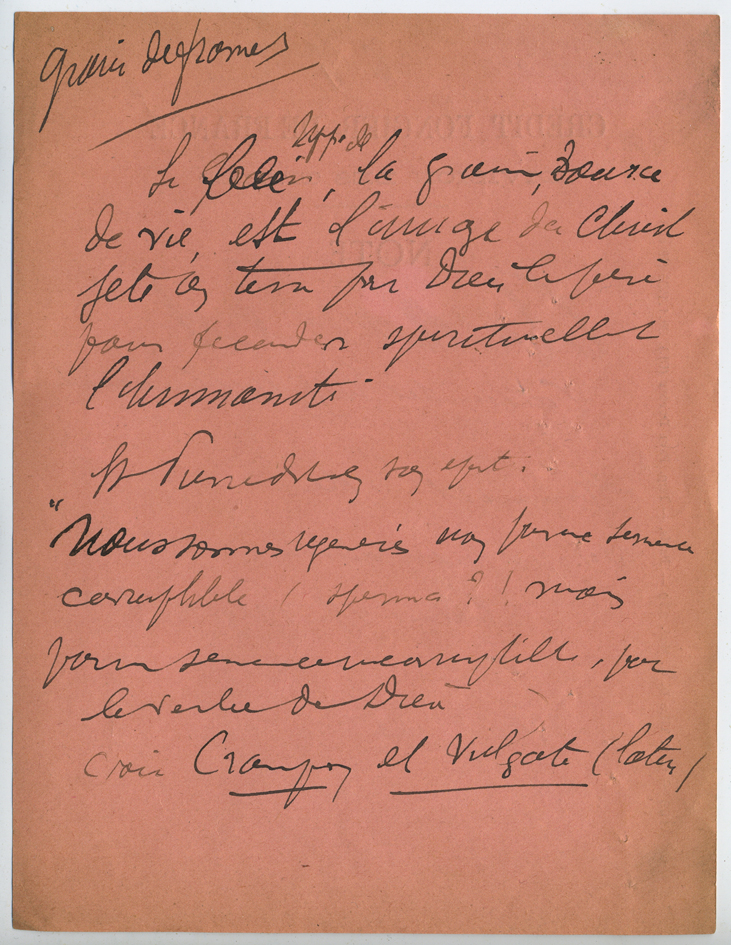 grain de
Le la grain, source
de vie, est l'image du Christ
jeté en terre par Dieu le père
pour féconder spirituellet
l'humanité
St Pierre dit en son epit.
"Nous sommes régénérés non par une semence
corruptible ( sperma ? ! mais
par un semence incorruptible, par
le verbe de Dieu
Crampon et Vulgate (latin)